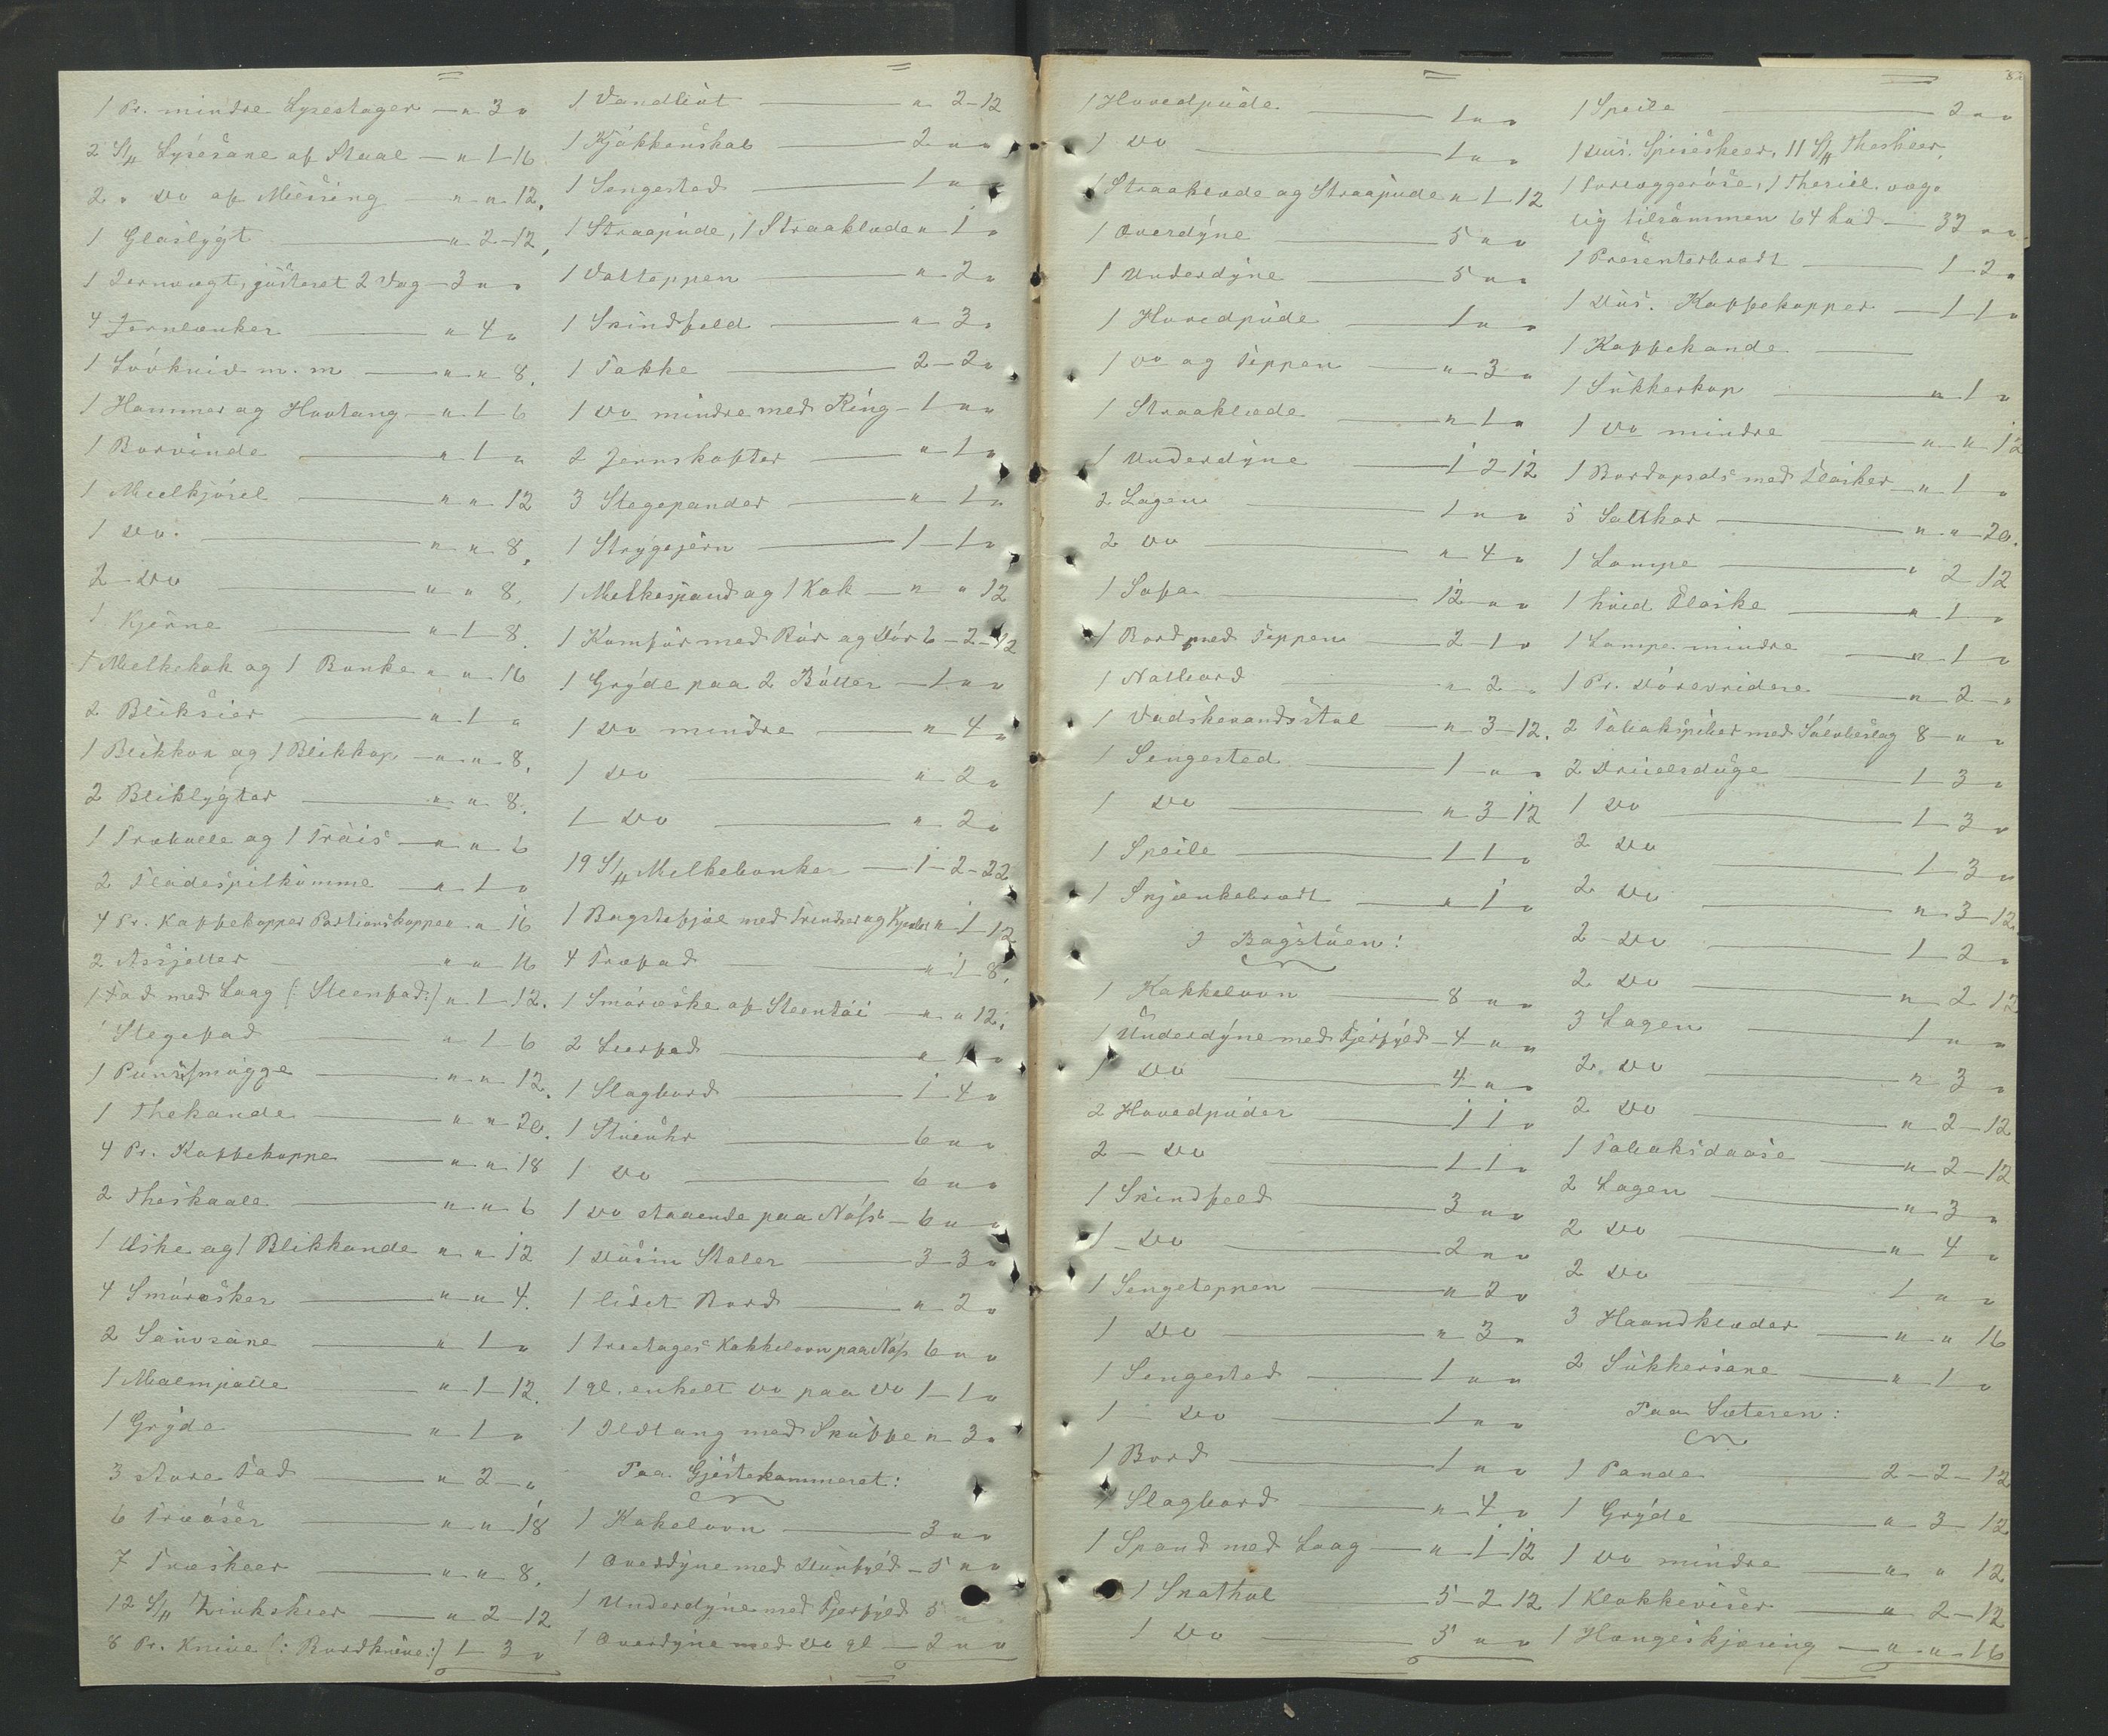 1 Pr. mindre Lysestager — " 3 "
2 S/tk Lysesaxe af Staal — " 1 16
2 " do af Messing — " " 12.
1 Glaslygt — " 2 12.
1 Jernvægt, justeret 2 Vog — 3 " "
4 Jernlænker — " 4 "
1 Lóvkniv m. m — " " 8.
1 Hammer og Hovtang — " 1 6
1 Borvinde — " 1 "
1 Meelkjórel — " " 12
1 do. — " " 8.
2 do — " " 8.
1 Kjerne — " 1 8.
1 Melkekak og 1 Bunke " " 16
2 Bliksier — " 1 "
1 Blikkon og 1 Blikkop — " " 8.
2 Bliklygter — " " 8.
1 Træbolle og 1 Trais — " " 6
2 Flódespilkumme — " 1 "
4 Pr. Kaffekopper Portionskoppen " " 16
2 Assjetter — " " 16
1 Fad med Laag (: Steenfad:) " 1 12.
1 Stegefad — " 1 6
1 Punschmugge — " " 12.
1 Thekande — " " 20.
4 Pr. Kaffekoppe — " " 18
2 Theskaale — " " 6
1 Æske og 1 Blikkande " " 12
4 Smóræsker — " " 4.
2 Sauesaxe — " 1 "
1 Malmpotte — " 1 12.
1 Gryde — " 1 "
3 store Fad — " 2 "
6 Træóser — " " 18
7 Træskeer — " " 8.
12 S/tk Zinkskeer — " 2 12
8 Pr. Knive (: Bordknive:) 1 3 "
1 Vandbót — " 2 12
1 Kjókkenskab — 2 " "
1 Sengested — 1 " "
1 Straapude, 1 Straaklæde " 1 "
1 Vatteppen — " 2 "
1 Skindfeld — " 3.
1 Takke — 2 2 "
1 do mindre med Ring — 1 " "
2 Jernskufter — " 1 "
3 Stegepander — " 1 "
1 Strygejern — 1 1 "
1 Melkespand og 1 Kak — " " 12
1 Komfur med Rór og Dór 6 2 12
1 Gryde paa 2 Bótter — 1 " "
1 do mindre — " 4 "
1 do — " 2 "
1 do — " 2 "
19 S/tk Melkebunker — 1 2 22
1 Bagstefjæl med Trendser og Kjevler " 1 12
4 Træfad — " 1 8.
1 Smóræske af Steentói — " " 12.
2 Leerfad — " 1 "
1 Slagbord — 1 4 "
1 Stueuhr — 6 " "
1 do — 6 " "
1 do staaende paa Næss — 6 " "
1 Dusin Stoler — 3 3 "
1 lidet Bord — " 2 "
1 treetages Kakkelovn paa Næs 6 " "
1 gl. enkelt do paa do 1 1 "
1 Ildtang med Skuffe " 3 "
Paa Gjestekammeret:
1 Kakelovn — 3 " "
1 Overdyne med Dunfyld — 5 " "
1 Underdyne med Fjerfyld 5 " "
1 Overdyne med do gl — 2 " "
1 Hovedpude — 1 " "
1 do — 1 " "
1 Straaklæde og Straapude " 1 12
1 Overdyne — 5 " "
1 Underdyne — 5 " "
1 Hovedpude — 1 " "
1 do og Teppen — " 3 "
1 Straaklæde — " 1 "
1 Underdyne — 1 2 12
2 Lagen — 1 " "
2 do — " 4 "
1 Sofa — 12 " "
1 Bord med Teppen — 2 1 "
1 Natbord — " 2 "
1 Vadskevandsstol — " 3 12.
1 Sengested — 1 " "
1 do — " 3 12
1 Speile — 1 1 "
1 Skjænkebradt — " 1 "
I Bagstuen:
1 Kakkelovn — 8 " "
1 Underdyne med Fjerfyld 4 " "
1 do — 4 " "
2 Hovedpuder — 1 1 "
2 do — 1 1 "
1 Skindfeld — 3 " "
1 do — 2 " "
1 Sengeteppen — " 2 "
1 do — " 3 "
1 Sengested — 1 " "
1 do — 1 " "
1 Bord — 1 " "
1 Slagbord — " 4 "
1 Spand med Laag — " 1 12
1 Skathol — 5 2 12
1 do — 5 " "
1 Speile — 2 " "
1 Dus. Spiseskeer, 11 S/tk Theskeer,
1 Forlæggeróse, 1 Thesiel. vog-
tig tilsammen 64 Lod — 32 " "
1 Presenterbradt — 1 2 "
1 Dus. Kaffekopper — 1 1 "
1 Kaffekande —
1 Sukkerkop — " 1 "
1 do mindre — " " 12
1 Bordopsats med Flasker — " 1 "
5 Saltkar — " " 20.
1 Lampe — " 2 12
1 hvid Flaske — " 1 "
1 Lampe mindre — " 1 "
1 Pr. Dórevridere — " 2 "
2 Tobakspiber med Sólvbeslag 8 " "
2 Dreielsduge — 1 3 "
1 do — 1 3 "
2 do — 1 3 "
2 do — " 3 12.
2 do — 1 2 "
2 do — " 2 12
3 Lagen — 1 " "
2 do — " 3 "
2 do — " 2 12
1 Tobaksdaase — " 2 12
2 Lagen — " 3 "
2 do — " 4 "
2 do — 1 " "
3 Haandklæder — " " 16
2 Sukkersaxe — " 1 "
Paa Sæteren:
1 Pande — 2 2 12
1 Gryde — " 3 12
1 do mindre — " " 12
1 Klokkeviser — " 2 12
1 Hængeskjæring — " " 16